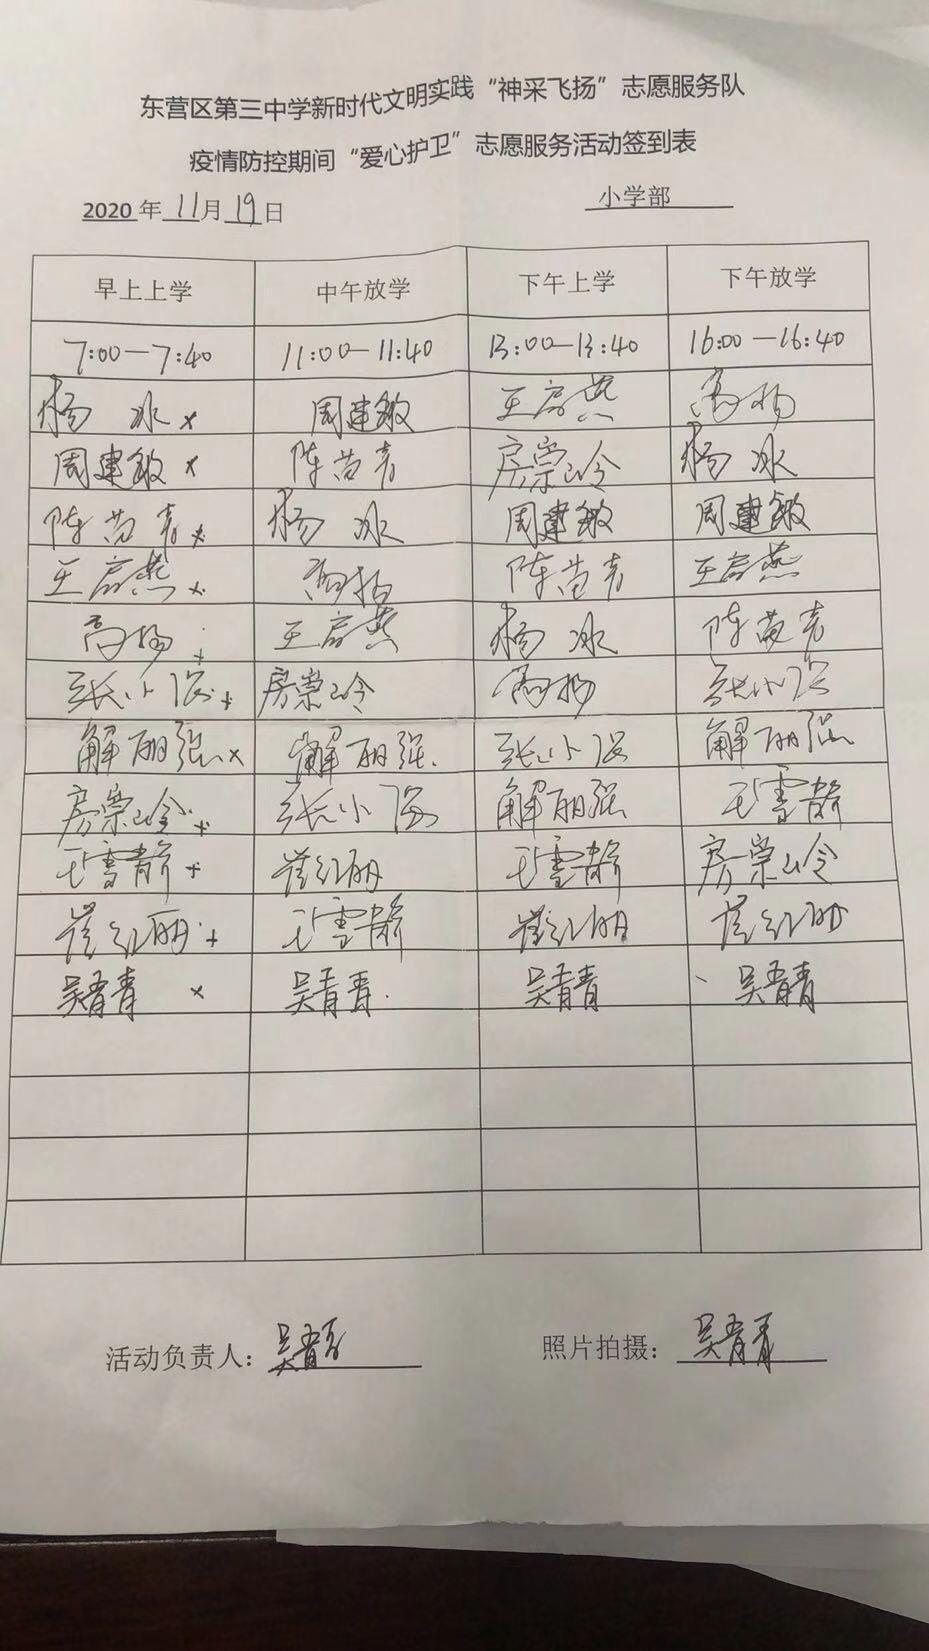 东营区第三中学新时代文明实践“神采飞扬”志愿服务队
疫情防控期间“爱心护卫”志愿服务活动签到表
2020年11月19日 小学部
早上上学 中午放学 下午上学 下午放学
7:00—7:40 11:00—11:40 13:00—13:40 16:00—16:40
杨冰× 周建敏 王启燕 高杨
周建敏× 陈苗青 房崇玲 杨冰
陈苗青× 杨冰 周建敏 周建敏
王启燕× 高杨 陈苗青 王启燕
高杨+ 王启燕 杨冰 陈苗青
张小溪+ 房崇玲 高杨 张小溪
解丽强× 解丽强. 张小溪 解丽强
房崇玲+ 张小溪 解丽强 王雪静
王雪静+ 崔红丽 王雪静 房崇玲
崔红丽+ 王雪静 崔红丽 崔红丽
吴青青× 吴青青. 吴青青 吴青青
活动负责人：吴青青 照片拍摄：吴青青